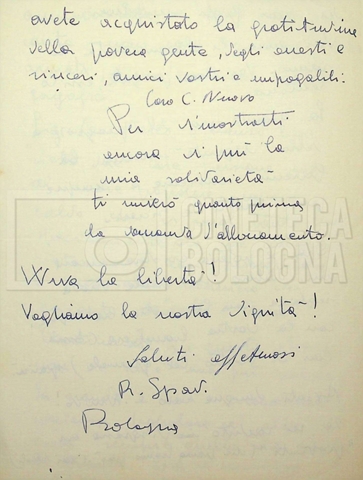 avete acquistato la gratitudine
della povera gente, degli onesti e
sinceri, amici vostri e impagabili.
Caro C. Nuovo
Per dimostrarti
ancora di più la
mia solidarietà
ti invierò quanto prima
la domanda d'abbonamento.
W viva la libertà!
Vogliamo la nostra dignità!
Saluti affettuosi
R. Spad.
Bologna
CINETECA
BOLOGNA